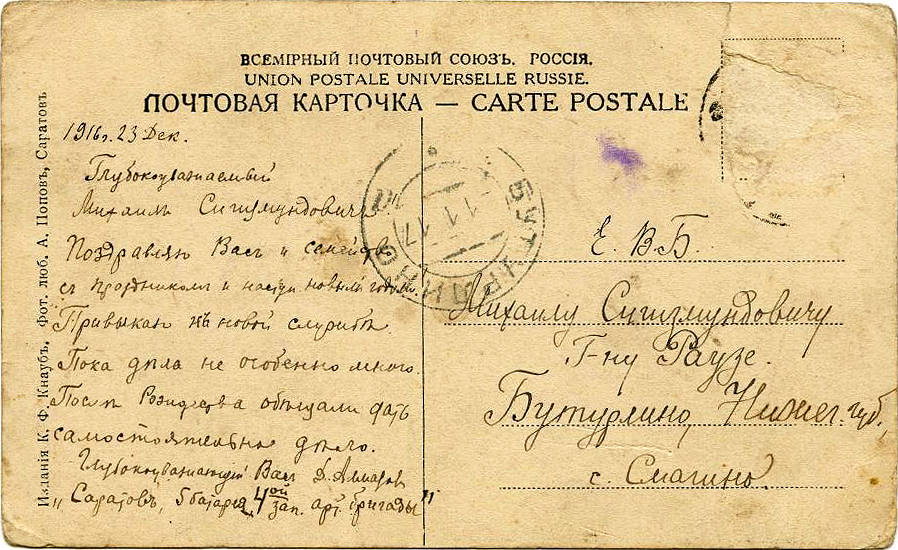 ВСЕМІРНЫЙ ПОЧТОВЫЙ СОЮЗЪ. РОССІЯ.
UNION POSTALE UNIVERSELLE RUSSIE.
ПОЧТОВАЯ КАРТОЧКА — CARTE POSTALE
Изданія К. Ф. Кнаубъ. Фот. люб. А. Поповъ, Саратовъ
1916 г. 23 Дек.
Глубокоуважаемый
Михаилъ Сигизмундовичъ
Поздравляю Васъ и семейство
съ праздникомъ и наступ. новымъ годомъ.
Привыкаю къ новой службѣ.
Пока дѣла не особенно много.
Послѣ Рождества обѣщали дать
самостоятельное дѣло.
Глубокоуважающій Васъ
"Саратовъ, 5 батарея, 4ой зап. арт. бригады"
БУТУРЛИНО
1 1 17
Е. В Б.
Михаилу Сигизмундовичу
Г-ну Раузе.
Бутурлино, Нижег. губ,
с. Смагино